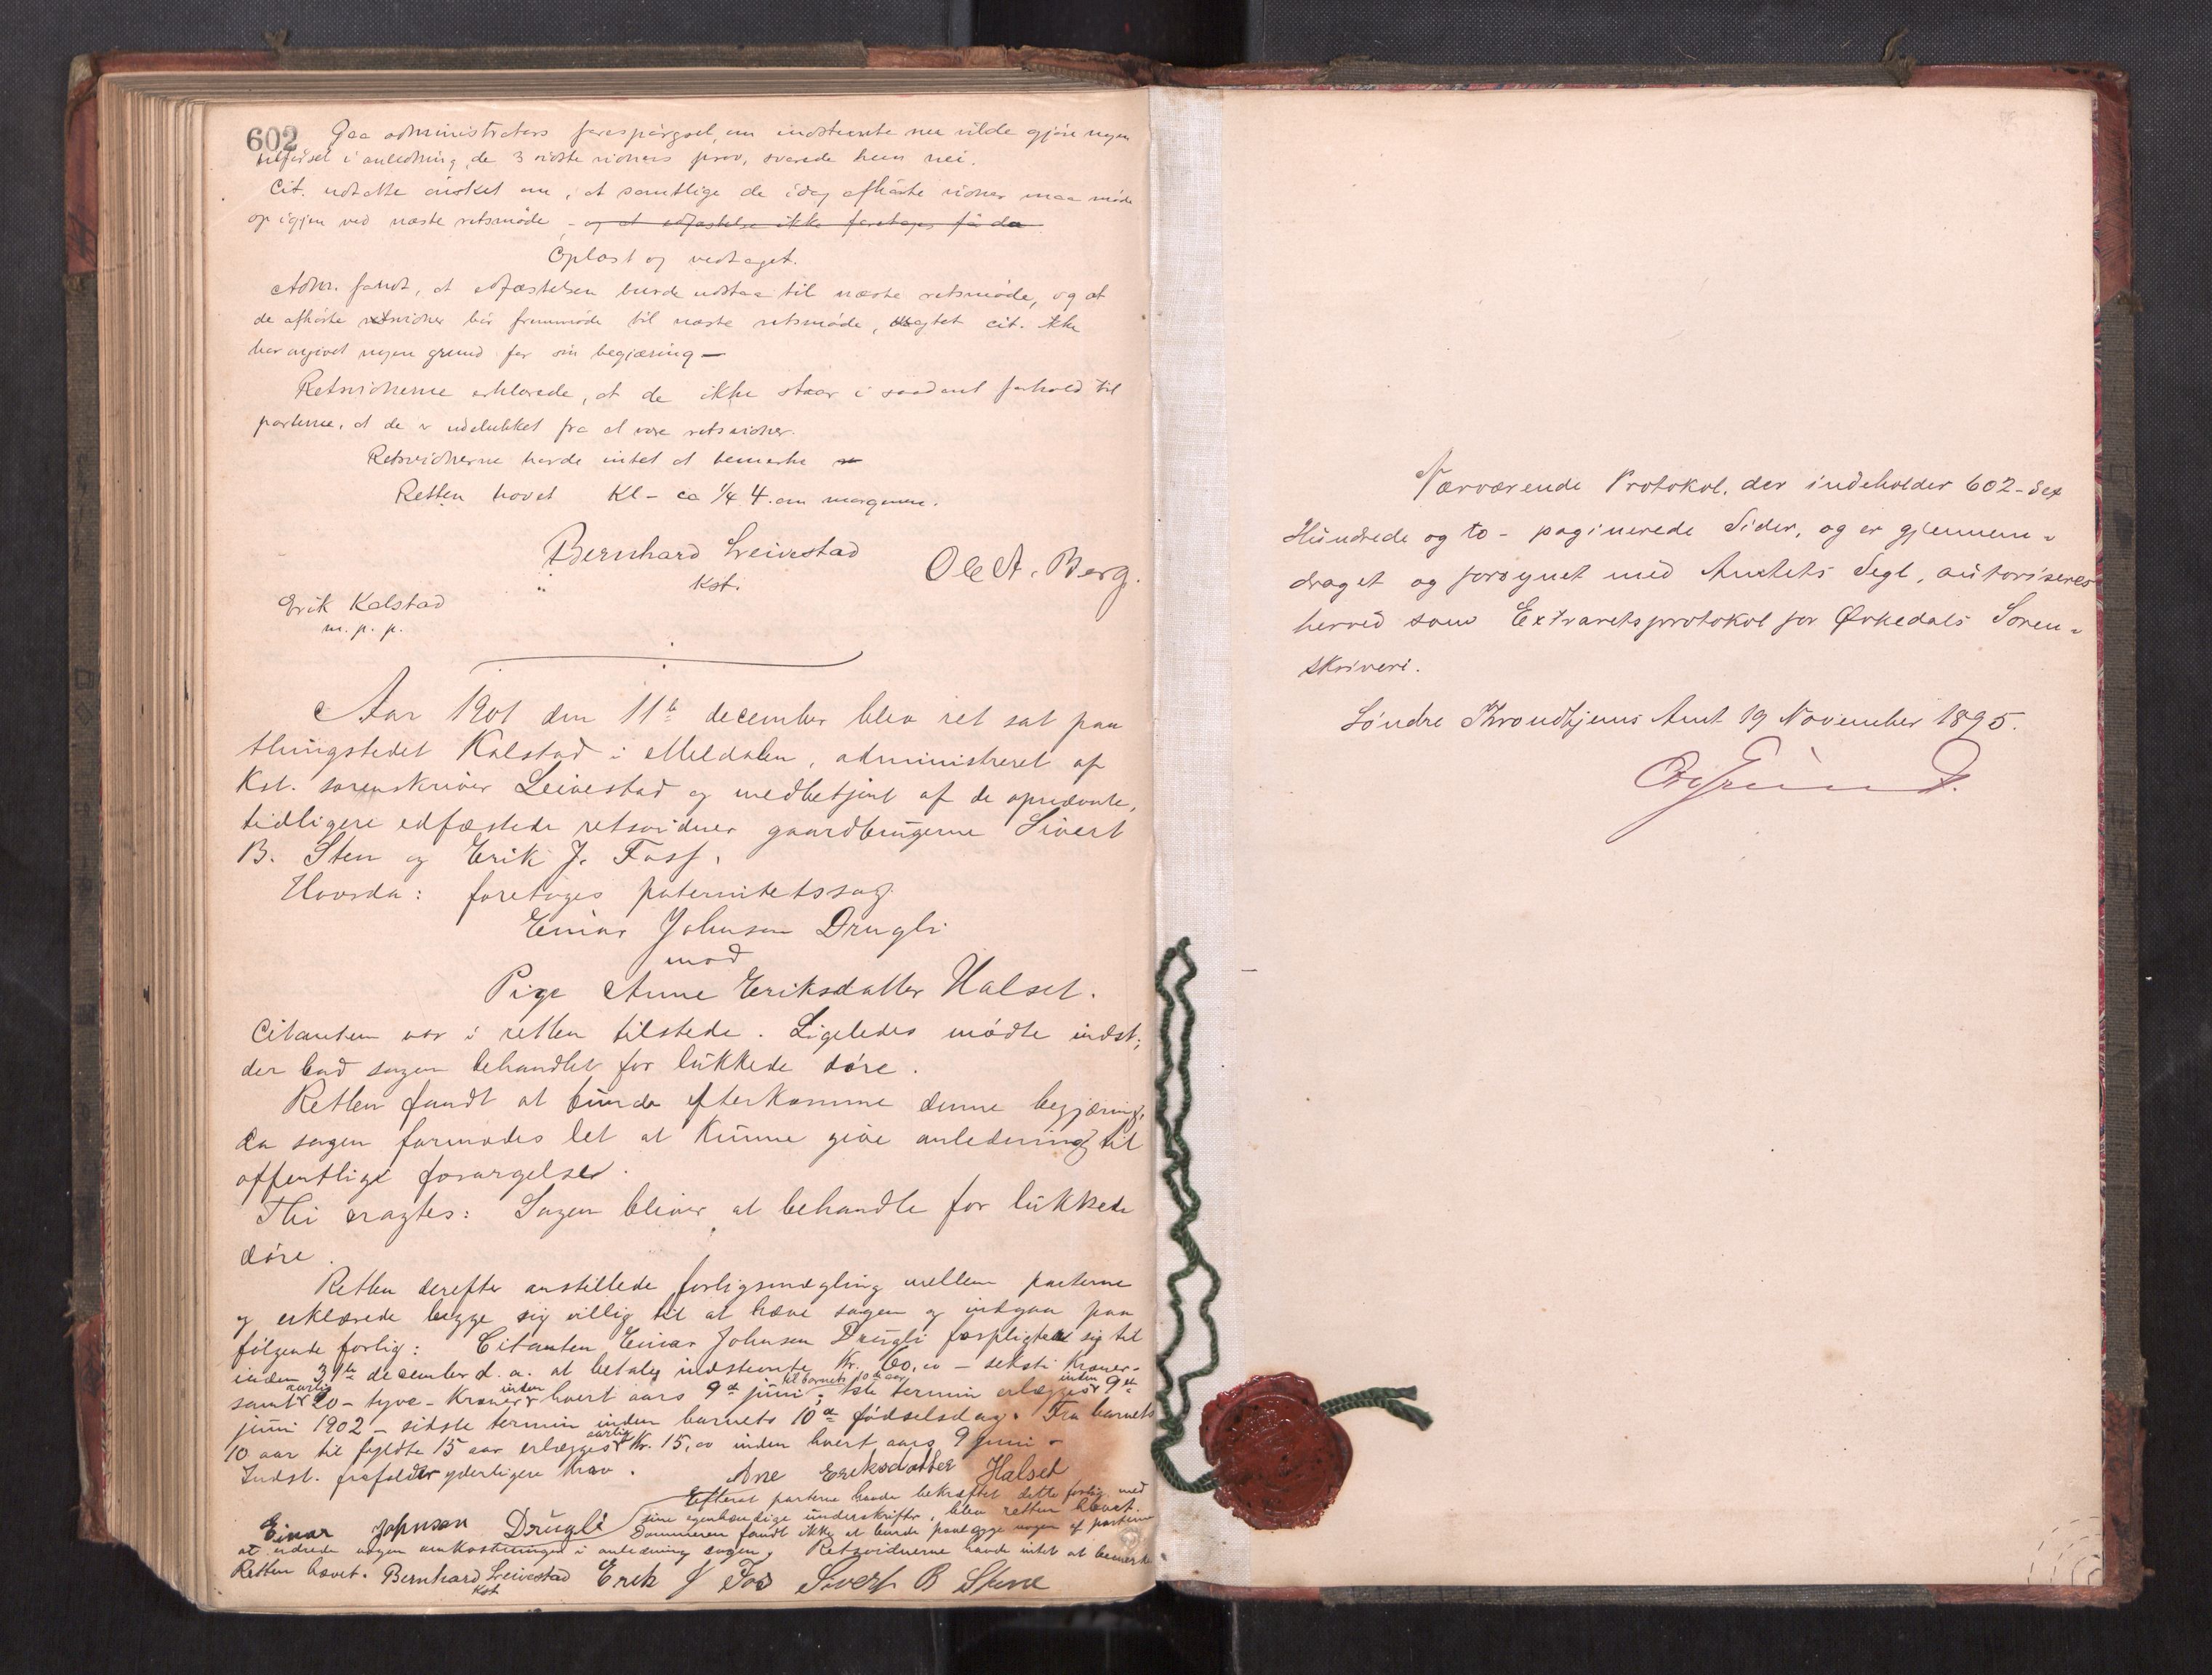 602 Paa administrators forespørgsel, om indstevnte nu vilde gjøre nogen
tilførsel i anledning de 3 sidste vidners prov, svarede hun nei.
Cit. udtalte ønsket om, at samtlige de idag afhørte vidner maa møde
op igjen ved næste retsmøde, - og at edfæstelse ikke foretages før da.
Oplæst og vedtaget.
Adm. fandt, at edfæstelsen burde udstaa til næste retsmøde, og at
de afhørte vidner bør fremmøde til næste retsmøde, uagtet cit. ikke
har angivet nogen grund for sin begjæring —
Retsvidnerne erklærede, at de ikke staar i saadant forhold til
parterne, at de er udelukket fra at være retsvidner.
Retsvidnerne havde intet at bemerke
Retten hævet Kl - ca 1/4 4 om morgenen.
Bernhard Leivestad
Kst.
Ole A. Berg.
Erik Kalstad
m. p. p.
Aar 1901 den 11te december blev ret sat paa
thingstedet Kalstad i Meldalen, administreret af
Kst. sorenskriver Leivestad og medbetjent af de opnævnte,
tidligere edfæstede retsvidner gaardbrugerne Sivert
B. Sten og Erik J. Fosf.
Hvorda: foretoges paternitetssag
Einar Johnsen Drugli
mod
Pige Anne Eriksdatter Halset.
Citanten var i retten tilstede. Ligeledes mødte indst.;
der bad sagen behandlet for lukkede døre.
Retten fandt at burde efterkomme denne begjæring,
da sagen formodes let at kunne give anledning til
offentlige forargelse.
Thi eragtes: Sagen bliver at behandle for lukkede
døre.
Retten derefter anstillede forligsmægling mellem parterne
og erklærede begge sig villig til at hæve sagen og indgaa paa
følgende forlig: Citanten Einar Johnsen Drugli forpligter sig til
inden 31te december d. a. at betale indstevnte Kr. 60,00 - seksti Kroner -
samt aarlig 20 - tyve - Kroner inden hvert aars 9de juni til barnets 10de aar; 1ste termin erlægges inden 9de
juni 1902 - sidste termin inden barnets 10de fødselsdag. Fra barnets
10 aar til fyldte 15 aar erlægges aarlig Kr. 15,00 inden hvert aars 9 juni -
Indst. frafalder yderligere krav. Ane Eriksdatter Halset
Efterat parterne havde bekræftet dette forlig med
sine egenhændige underskrifter, blev retten hævet.
Einar Johnsen Drugli Dommeren fandt ikke at burde paalægge nogen af parterne
at udrede nogen omkostninger i anledning sagen. Retsvidnerne havde intet at bemerke
Retten hævet. Bernhard Leivestad Erik J Fos Sivert B Stene
Kst
Nærværende Protokol, der indeholder 602 - Sex
Hundrede og to - paginerede Sider, og er gjennem-
draget og forsynet med Amtets Segl, autoriseres
herved som Extraretsprotokol for Ørkedals Soren-
skriveri.
Søndre Throndhjems Amt 19 November 1895.